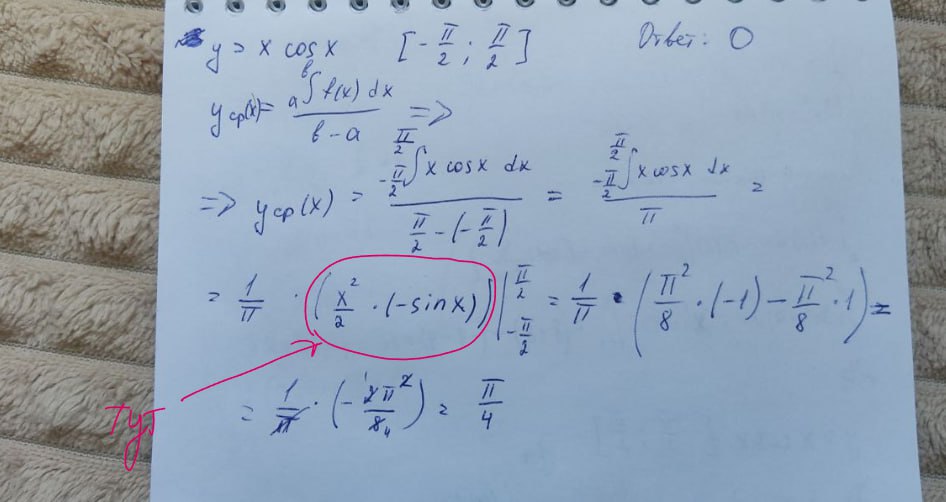 y = x cos x [-π/2 ; π/2] Ответ: 0
y ср(x) = a∫в f(x) dx / в - a =>
=> y ср(x) = -π/2∫π/2 x cos x dx / π/2 - (-π/2) = -π/2∫π/2 x cos x dx / π =
= 1/π · (x²/2 · (-sin x)) |π/2 -π/2 = 1/π · (π²/8 · (-1) - π²/8 · 1) =
= 1/π · (-2π²/8 4) = π/4
тут